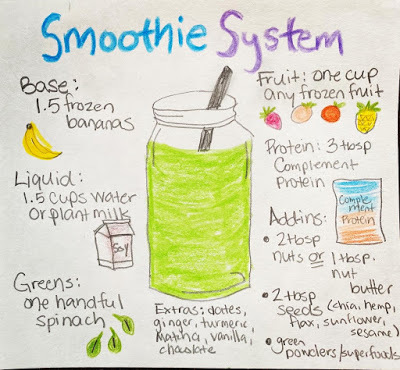 Smoothie System
Base:
1.5 frozen
bananas
Liquid:
1.5 cups water
or plant milk
Soy
Greens:
one handful
spinach
Extras: dates,
ginger, turmeric,
Matcha, vanilla,
chocolate
Fruit: one cup
any frozen fruit
Protein: 3 tbsp
Complement
Protein
Comple
ment
Protein
Addins:
• 2 tbsp
nuts or 1 tbsp.
nut
butter
• 2 tbsp
seeds (chia, hemp,
flax, sunflower,
sesame)
• green
powders/superfoods